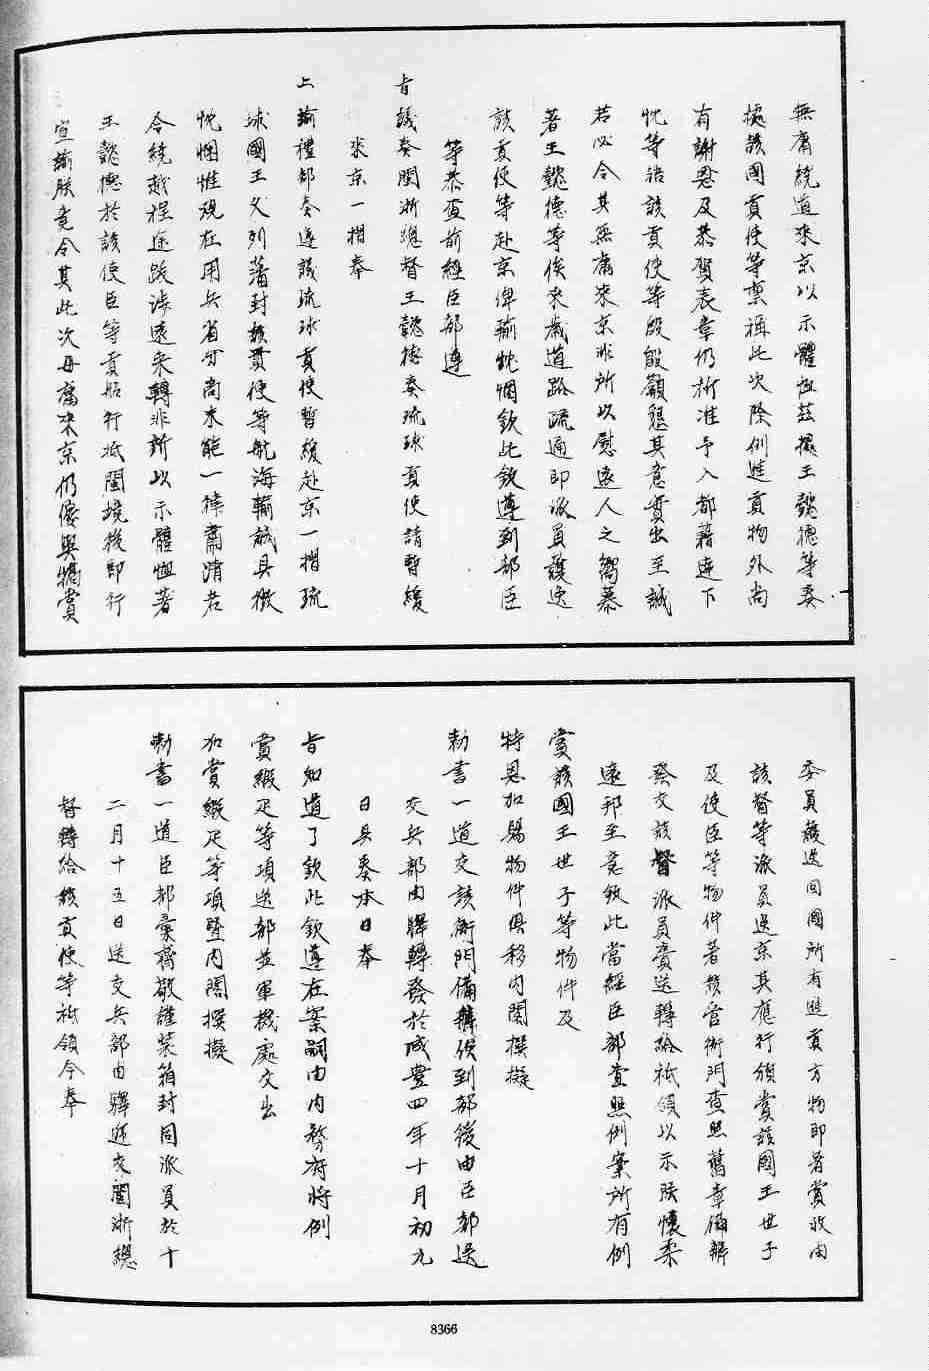 無庸繞道來京以示體恤茲據王懿德等奏
據該國貢使等稟稱此次除例進貢物外尚
有謝恩及恭賀表章仍祈准予入都藉達下
忱等語該貢使等殷殷籲懇其意實出至誠
若必令其無庸來京非所以慰遠人之嚮慕
著王懿德等俟來歲道路疏通即派員護送
該貢使等赴京俾輸忱悃欽此欽遵到部臣
等恭查前經臣部遵
旨議奏閩浙總督王懿德奏琉球貢使請暫緩
來京一摺奉
上諭禮部奏遵議琉球貢使暫緩赴京一摺琉
球國王久列藩封該貢使等航海輸誠具徵
忱悃惟現在用兵省分尚未能一律肅清若
令繞越程途跋涉遠來轉非所以示體恤著
王懿德於該使臣等貢船行抵閩境後即行
宣諭朕意令其此次毋庸來京仍優與犒賞
委員護送回國所有進貢方物即著賞收由
該督等派員送京其應行頒賞該國王世子
及使臣等物件著該管衙門查照舊章備辦
發交該督派員賫送轉給祇領以示朕懷柔
遠邦至意欽此當經臣部查照例案所有例
賞該國王世子等物件及
特恩加賜物件俱移內閣撰擬
勅書一道交該衙門備辦俟到部後由臣部送
交兵部由驛轉發於咸豐四年十月初九
日具奏本日奉
旨知道了欽此欽遵在案嗣由內務府將例
賞緞疋等項送部並軍機處交出
加賞緞疋等項暨內閣撰擬
勅書一道臣部彙齊敬謹裝箱封固派員於十
二月十五日送交兵部由驛遞交閩浙總
督轉給該貢使等祇領今奉
8366